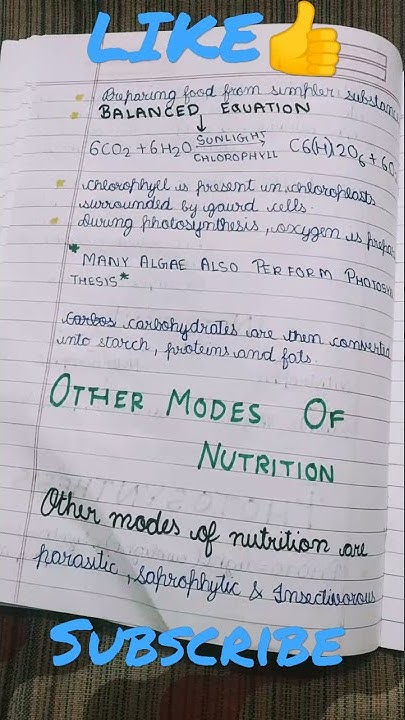 LIKE👍
Preparing food from simpler substanc
BALANCED EQUATION
↓
6CO2 + 6H2O SUNLIGHT → CHLOROPHYLL C6(H)12O6 + 6O
chlorophyll is present in chloroplasts
surrounded by gaurd cells.
During photosynthesis, oxygen is prepar
*MANY ALGAE ALSO PERFORM PHOTOSYN
THESIS*
carbohydrates are then converted
into starch, proteins and fats.
OTHER MODES OF
NUTRITION
Other modes of nutrition are
parasitic, Saprophytic & Insectivorous
SUBSCRIBE